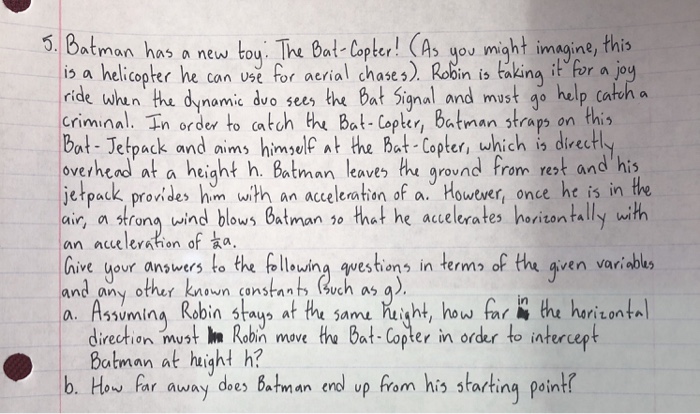 5. Batman has a new toy: The Bat-Copter! (As you might imagine, this
is a helicopter he can use for aerial chases). Robin is taking it for a joy
ride when the dynamic duo sees the Bat Signal and must go help catch a
criminal. In order to catch the Bat-Copter, Batman straps on this
Bat-Jetpack and aims himself at the Bat-Copter, which is directly
overhead at a height h. Batman leaves the ground from rest and his
jetpack provides him with an acceleration of a. However, once he is in the
air, a strong wind blows Batman so that he accelerates horizontally with
an acceleration of ½a.
Give your answers to the following questions in terms of the given variables
and any other known constants (such as g).
a. Assuming Robin stays at the same height, how far in the horizontal
direction must Robin move the Bat-Copter in order to intercept
Batman at height h?
b. How far away does Batman end up from his starting point?